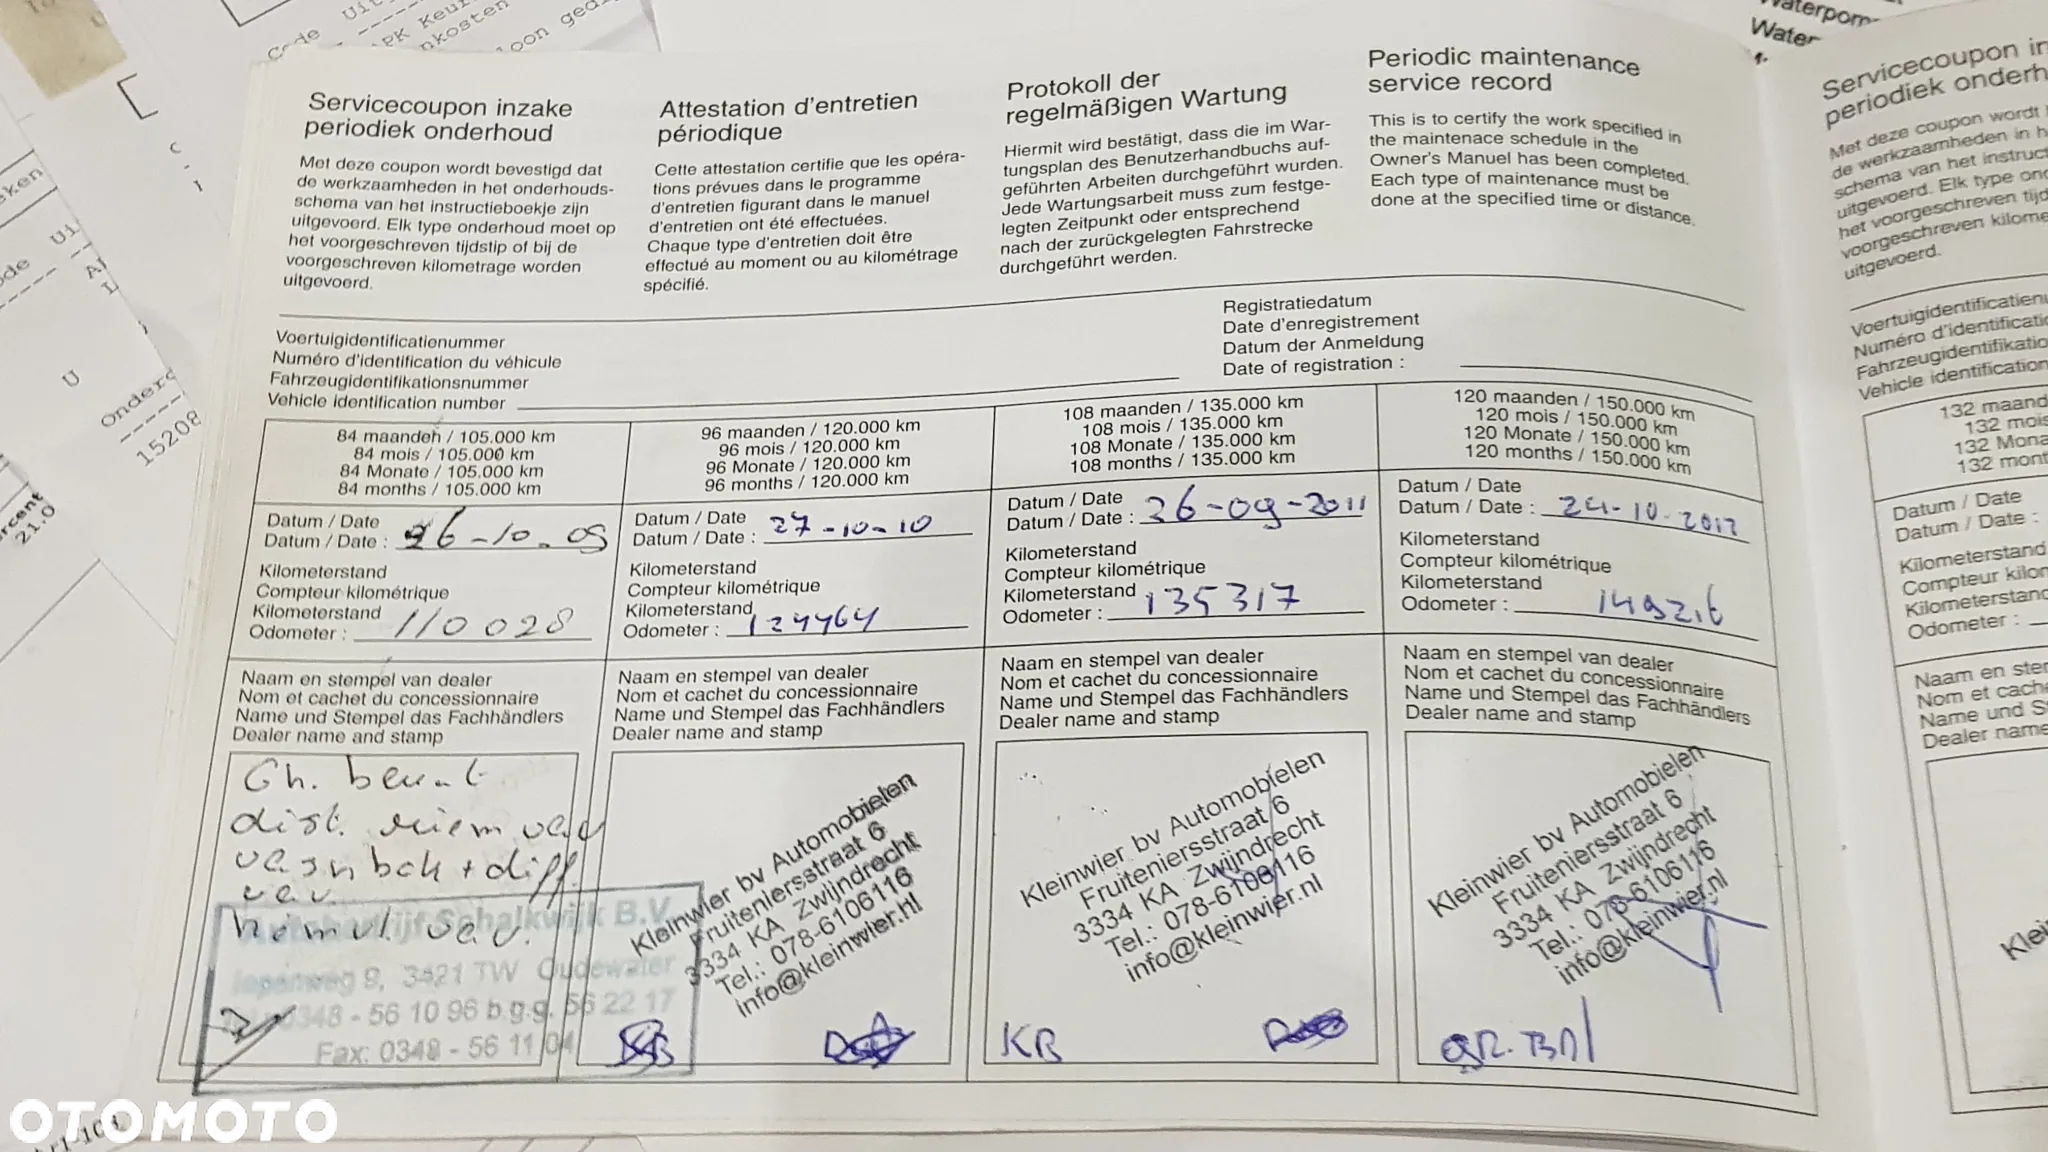 Servicecoupon inzake
periodiek onderhoud
Met deze coupon wordt bevestigd dat
de werkzaamheden in het onderhouds-
schema van het instructieboekje zijn
uitgevoerd. Elk type onderhoud moet op
het voorgeschreven tijdstip of bij de
voorgeschreven kilometrage worden
uitgevoerd.
Attestation d'entretien
périodique
Cette attestation certifie que les opéra-
tions prévues dans le programme
d'entretien figurant dans le manuel
d'entretien ont été effectuées.
Chaque type d'entretien doit être
effectué au moment ou au kilométrage
spécifié.
Protokoll der
regelmäßigen Wartung
Hiermit wird bestätigt, dass die im War-
tungsplan des Benutzerhandbuchs auf-
geführten Arbeiten durchgeführt wurden.
Jede Wartungsarbeit muss zum festge-
legten Zeitpunkt oder entsprechend
nach der zurückgelegten Fahrstrecke
durchgeführt werden.
Periodic maintenance
service record
This is to certify the work specified in
the maintenace schedule in the
Owner's Manual has been completed.
Each type of maintenance must be
done at the specified time or distance.
Voertuigidentificatienummer
Numéro d'identification du véhicule
Fahrzeugidentifikationsnummer
Vehicle identification number
Registratiedatum
Date d'enregistrement
Datum der Anmeldung
Date of registration :
84 maanden / 105.000 km
84 mois / 105.000 km
84 Monate / 105.000 km
84 months / 105.000 km
Datum / Date
Datum / Date : 26-10-09
Kilometerstand
Compteur kilométrique
Kilometerstand
Odometer : 110028
Naam en stempel van dealer
Nom et cachet du concessionnaire
Name und Stempel das Fachhändlers
Dealer name and stamp
dist. riem
+ diff.
Schalkwijk B.V.
9, 3421 TW Oudewater
0348 - 56 10 96 b.g.g. 56 22 17
Fax: 0348 - 56 11 04
96 maanden / 120.000 km
96 mois / 120.000 km
96 Monate / 120.000 km
96 months / 120.000 km
Datum / Date
Datum / Date : 27-10-10
Kilometerstand
Compteur kilométrique
Kilometerstand
Odometer : 124464
Naam en stempel van dealer
Nom et cachet du concessionnaire
Name und Stempel das Fachhändlers
Dealer name and stamp
Kleinwier bv Automobielen
Fruteniersstraat 6
3334 KA Zwijndrecht
Tel.: 078-6106116
info@kleinwier.nl
108 maanden / 135.000 km
108 mois / 135.000 km
108 Monate / 135.000 km
108 months / 135.000 km
Datum / Date
Datum / Date : 26-09-2011
Kilometerstand
Compteur kilométrique
Kilometerstand
Odometer : 135317
Naam en stempel van dealer
Nom et cachet du concessionnaire
Name und Stempel das Fachhändlers
Dealer name and stamp
Kleinwier bv Automobielen
Fruteniersstraat 6
3334 KA Zwijndrecht
Tel.: 078-6106116
info@kleinwier.nl
KB
120 maanden / 150.000 km
120 mois / 150.000 km
120 Monate / 150.000 km
120 months / 150.000 km
Datum / Date
Datum / Date : 24-10-2012
Kilometerstand
Compteur kilométrique
Kilometerstand
Odometer :
Naam en stempel van dealer
Nom et cachet du concessionnaire
Name und Stempel das Fachhändlers
Dealer name and stamp
Kleinwier bv Automobielen
Fruteniersstraat 6
3334 KA Zwijndrecht
Tel.: 078-6106116
info@kleinwier.nl
Servicecoupon
periodiek
Met deze coupon wordt
de werkzaamheden in
schema van het
uitgevoerd. Elk type
het voorgeschreven
voorgeschreven
uitgevoerd.
Numéro
Vehicle identification
132
132 mois
132
132
Datum / Date
Datum / Date :
Kilometerstand
Compteur
Kilometerstand
Odometer :
Naam en
Nom et
Name und
Dealer name
15208
21.0
OTOMOTO